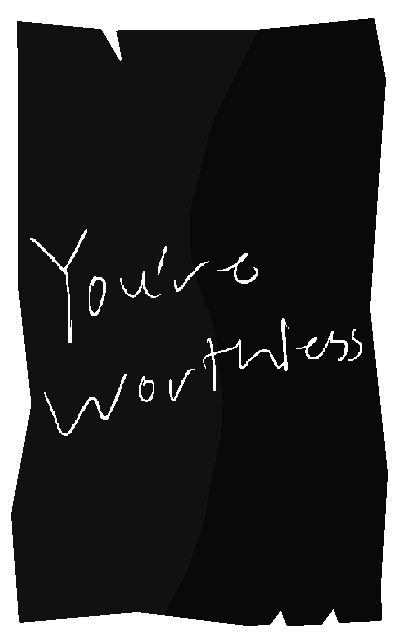 You're
Worthless